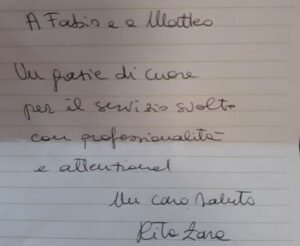 A Fabio e a Matteo
Un grazie di cuore
per il servizio svolto
con professionalità
e attenzione!
Un caro saluto
Rita Zara